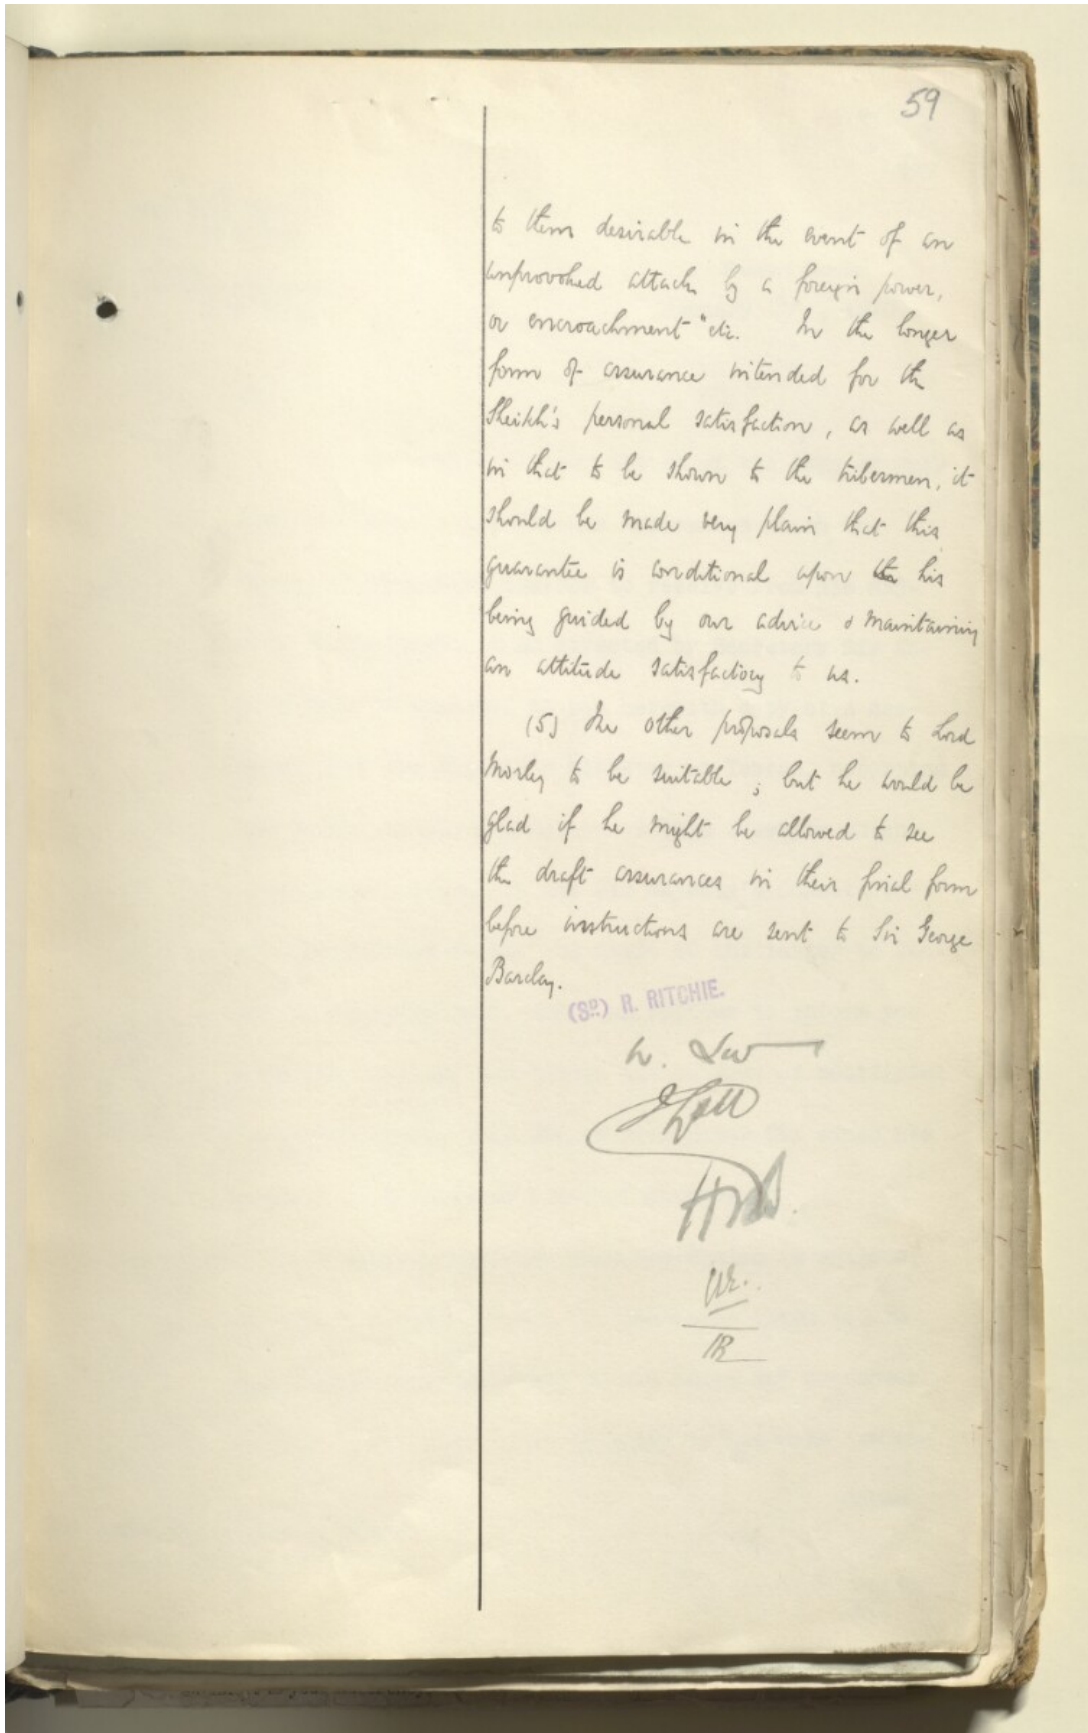 59
to them desirable in the event of an
unprovoked attack by a foreign power,
or encroachment" etc. In the longer
form of assurance intended for the
Sheikh's personal satisfaction, as well as
in that to be shown to the tribesmen, it
should be made very plain that this
guarantee is conditional upon the his
being guided by our advice & maintaining
an attitude satisfactory to us.
(5) The other proposals seem to Lord
Morley to be suitable; but he would be
glad if he might be allowed to see
the draft assurances in their final form
before instructions are sent to Sir George
Barclay.
(SD.) R. RITCHIE.